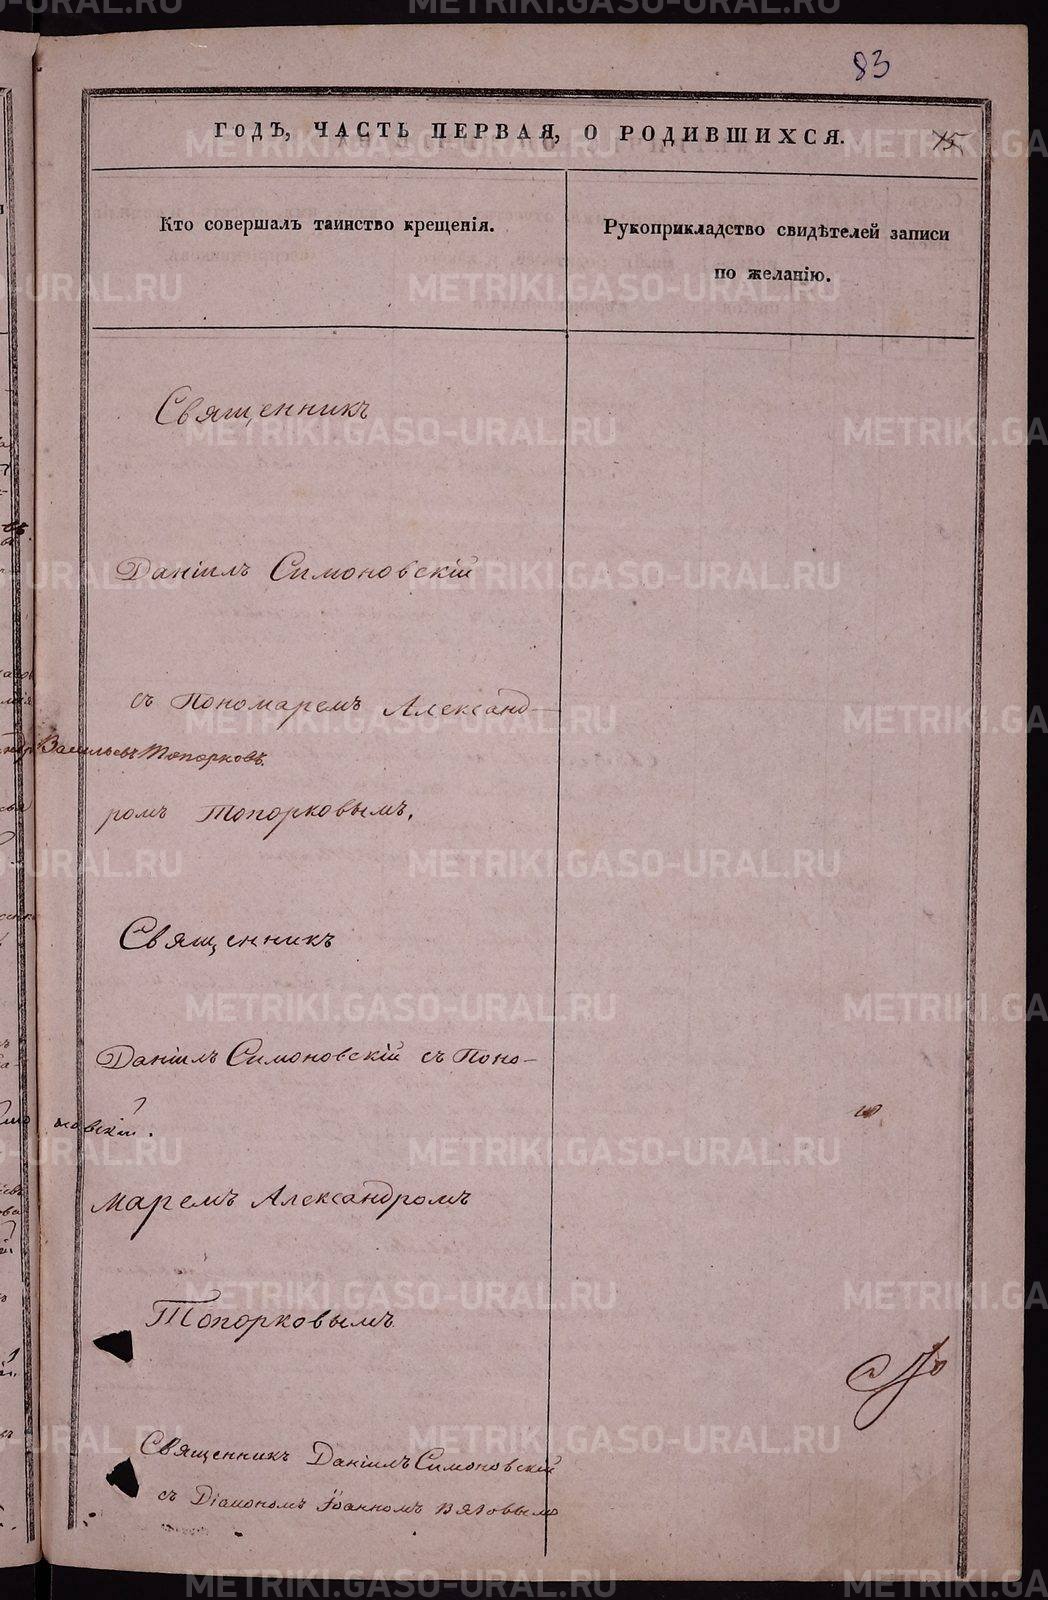 83
ГОДЪ, ЧАСТЬ ПЕРВАЯ, О РОДИВШИХСЯ.
75
Кто совершалъ таинство крещенія.
Рукоприкладство свидѣтелей записи
по желанію.
Священникъ
Даніилъ Симоновскій
съ Пономаремъ Александ-
Васильевъ Топорковъ.
ромъ Топорковымъ.
Священникъ
Даніилъ Симоновскій съ Поно-
новскій.
маремъ Александромъ
Топорковымъ
Священникъ Даніилъ Симоновскій
съ Діакономъ Іоанномъ Вяtовымъ
METRIKI.GASO-URAL.RU